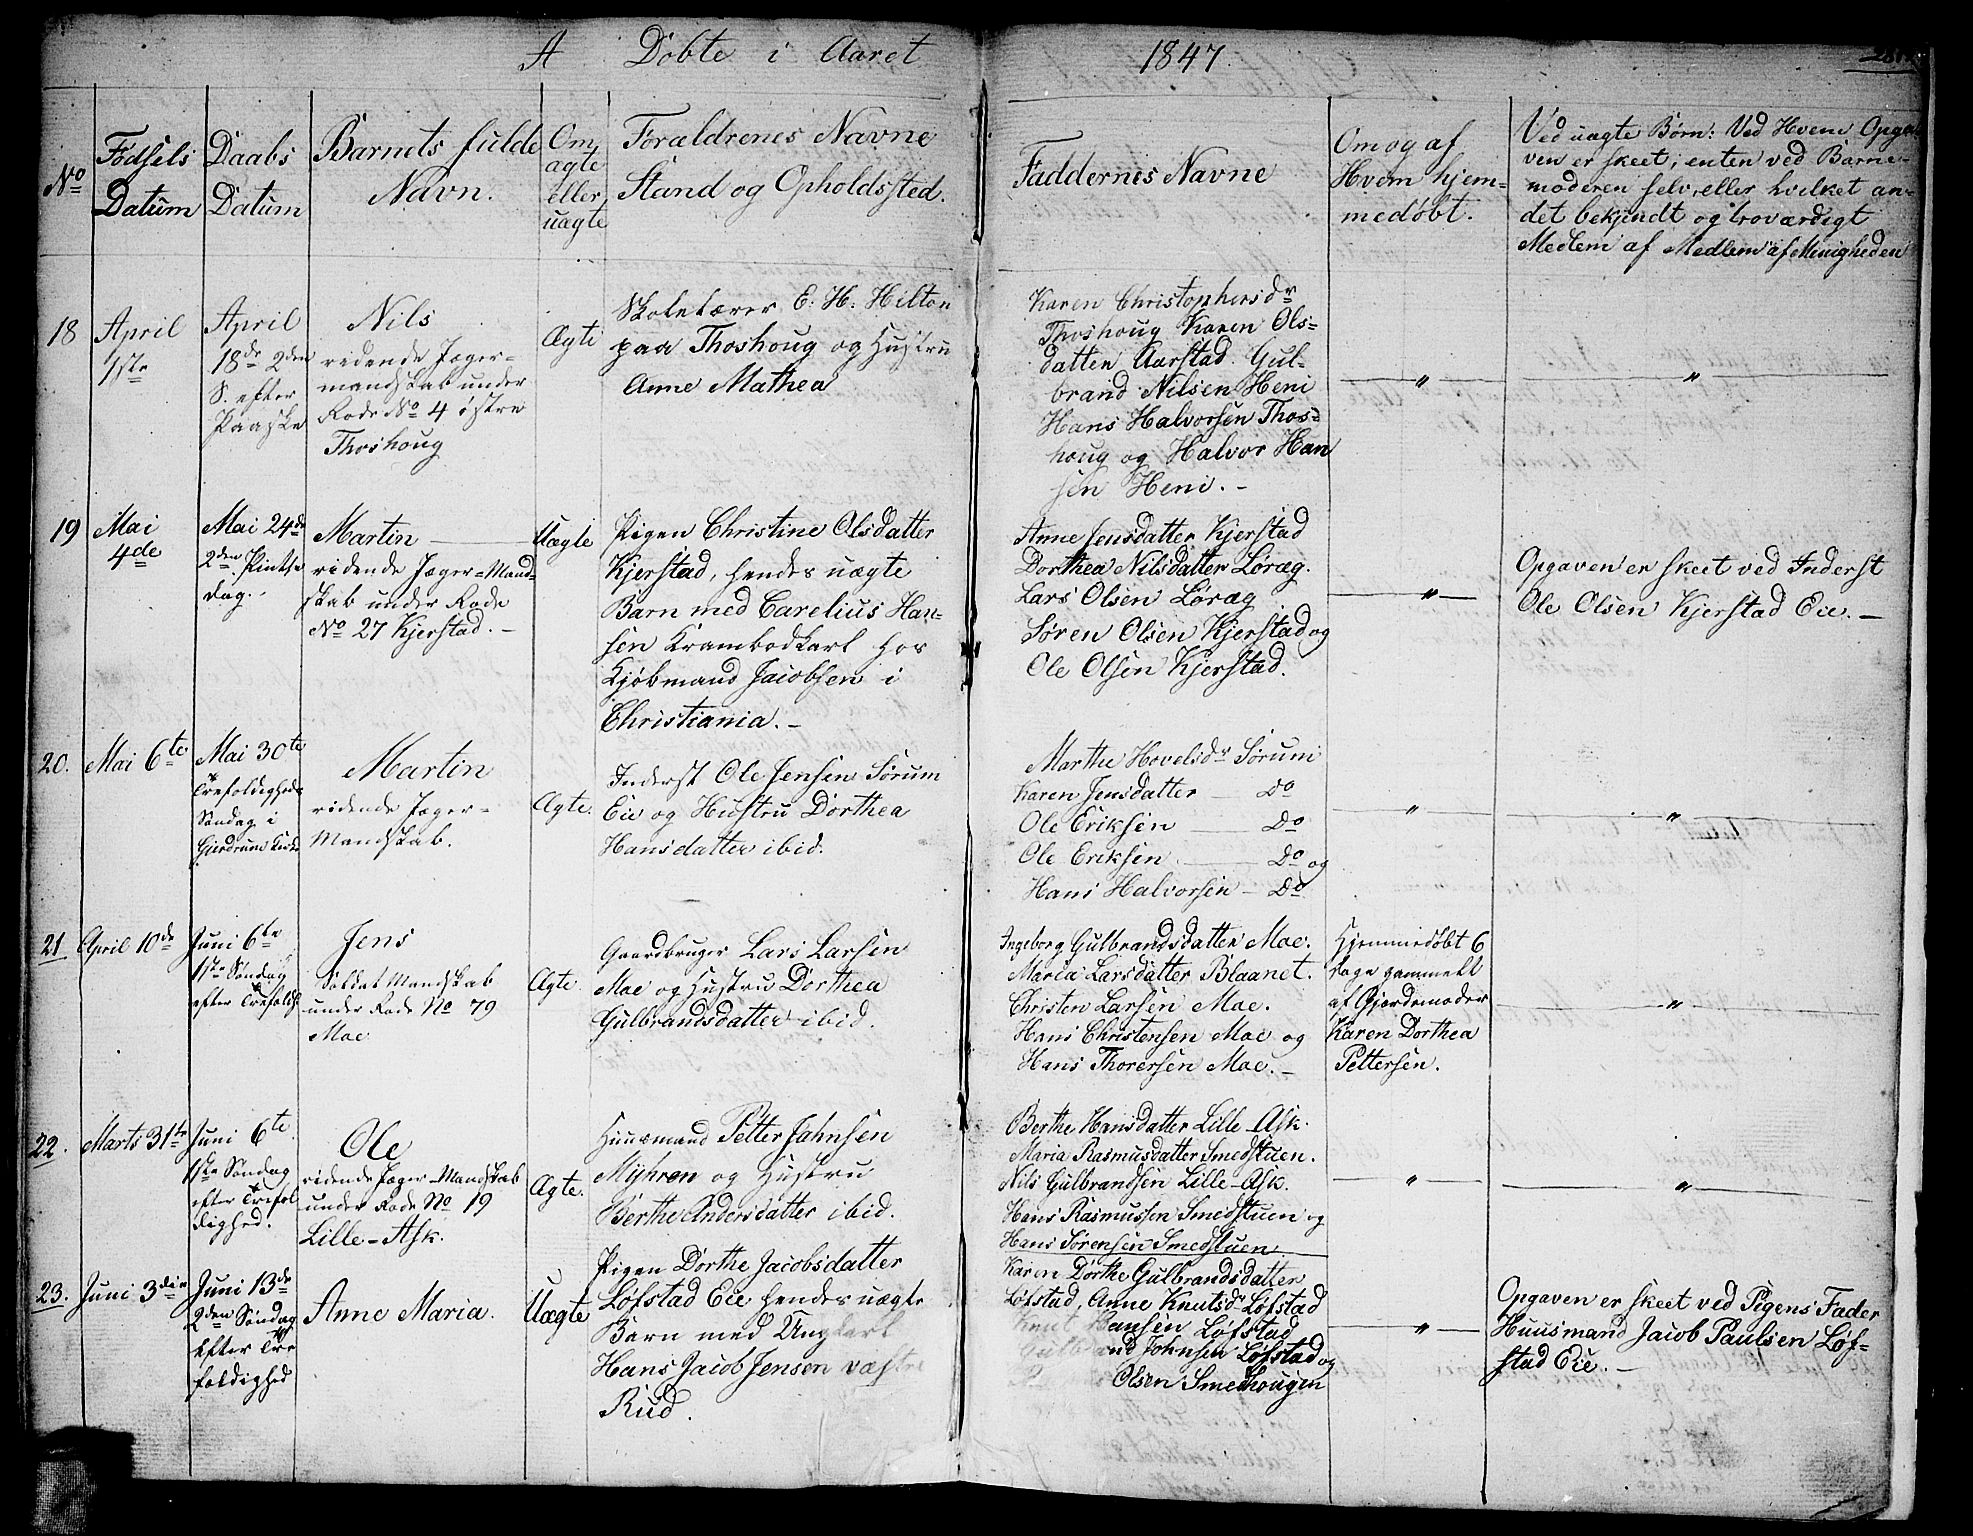 A Døbte i Aaret 1847.
No
Fødsels
Datum
Daabs
Datum
Barnets fulde
Navn.
Om
ægte
eller
uægte
Forældrenes Navne
Stand og Opholdssted.
Faddernes Navne
Om og af
Hvem hjem-
medøbt.
Ved uægte Børn: Ved Hvem Opga-
ven er skeet; enten ved Barne-
moderen selv, eller hvilket an-
det bekjendt og troværdigt
Medlem af Medlem af Menigheden
18
April
1ste
April
18de 2den
S. efter
Paaske
Nils
ridende Jæger-
mandskab under
Rode No 4 østre
Thoshoug
Ægte
Skolelærer E. H. Hilton
paa Thoshoug og Hustru
Anne Mathea
Karen Christophersdr
Thoshoug Karen Ols-
datten Aarstad. Gul-
brand Nilsen Heni
Hans Halvorsen Thos-
houg og Halvor Han
sen Heni. -
"
"
19
Mai
4de
Mai 24de
2den Pintse
dag.
Martin
ridende Jæger-Mand-
skab under Rode
No 27 Kjerstad. -
Uægte
Pigen Christine Olsdatter
Kjerstad, hendes uægte
Barn med Carelius Han-
sen Krambodkarl hos
Kjøbmand Jacobsen i
Christiania. -
Anne Jensdatter Kjerstad
Dorthea Nilsdatter Løræg.
Lars Olsen Løræg
Søren Olsen Kjerstad og
Ole Olsen Kjerstad.
"
Opgaven er skeet ved Inderst
Ole Olsen Kjerstad Eie. -
20.
Mai 6te
Mai 30te
Trefoldigheds
Søndag i
Gjerdrum Kirke
Martin
ridende Jæger-
Mandskab.
Ægte.
Inderst Ole Jensen Sørum
Eie og Hustru Dorthea
Hansdatter ibid.
Marthe Hovelsdr Sørum
Karen Jensdatter - Do
Ole Eriksen - Do
Ole Eriksen - Do og
Hans Halvorsen - Do
"
"
21
April 10de
Juni 6te
1ste Søndag
efter Trefoldh.
Jens
Soldat Mandskab
under Rode No 79
Moe
Ægte
Gaardbruger Lars Larsen
Moe og Hustru Dorthea
Gulbrandsdatter ibid.
Ingeborg Gulbrandsdatter Moe.
Maria Larsdatter Blaanet.
Christen Larsen Moe.
Hans Christensen Moe og
Hans Thorersen Moe. -
Hjemmedøbt 6
dage gammelt
af Gjordemoder
Karen Dorthea
Pettersen.
"
22.
Marts 31te
Juni 6te
1ste Søndag
efter Trefol
dighed.
Ole
ridende Jæger-Mandskab
under Rode No 19
Lille-Ask.
Ægte.
Huusmand Petter Johnsen
Myhren og Hustru
Berthe Andersdatter ibid.
Berthe Hansdatter Lille-Ask.
Maria Rasmusdatter Smedstuen.
Nils Gulbrandsen Lille-Ask.
Hans Rasmussen Smedstuen og
Hans Sørensen Smedstuen.
"
"
23.
Juni 3die
Juni 13de
2den Søndag
Efter Tre
foldighed
Anne Maria.
Uægte
Pigen Dorthe Jacobsdatter
Løfstad Eie hendes uægte
Barn med Ungkarl
Hans Jacob Jensen væstre
Rud.
Karen Dorthe Gulbrandsdatter
Løfstad, Anne Knutsdr Løfstad
Knut Hansen Løfstad
Gulbrand Johnsen Løfstad og
Olsen Smedhougen
"
Opgaven er skeet ved Pigens Fader
Huusmand Jacob Paulsen Løf-
stad Eie. -